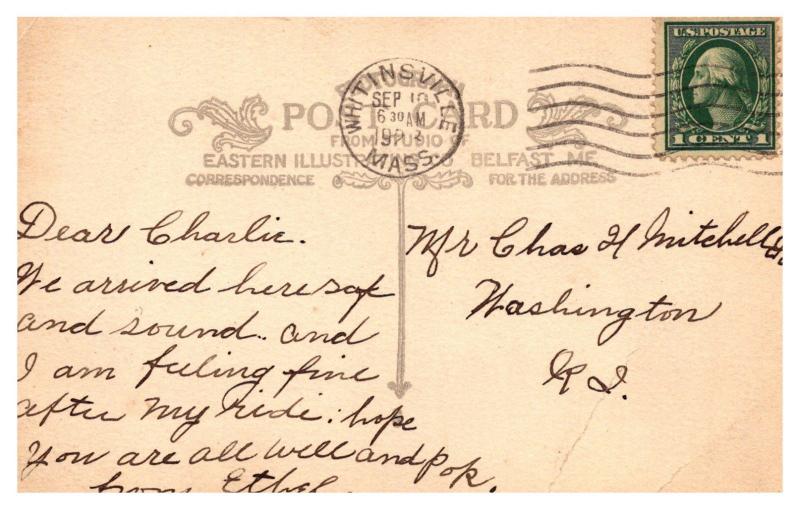 U.S. POSTAGE
1 CENT 1
WHITINSVILLE
SEP 10
6 30 AM
MASS.
POST CARD
FROM STUDIO OF
EASTERN ILLUSTR BELFAST, ME.
CORRESPONDENCE
FOR THE ADDRESS
Dear Charlie.
We arrived here saf
and sound.. and
I am feeling fine
after my ride: hope
you are all well and pop.
from Ethel
Mr Chas H Mitchell
Washington
R I.